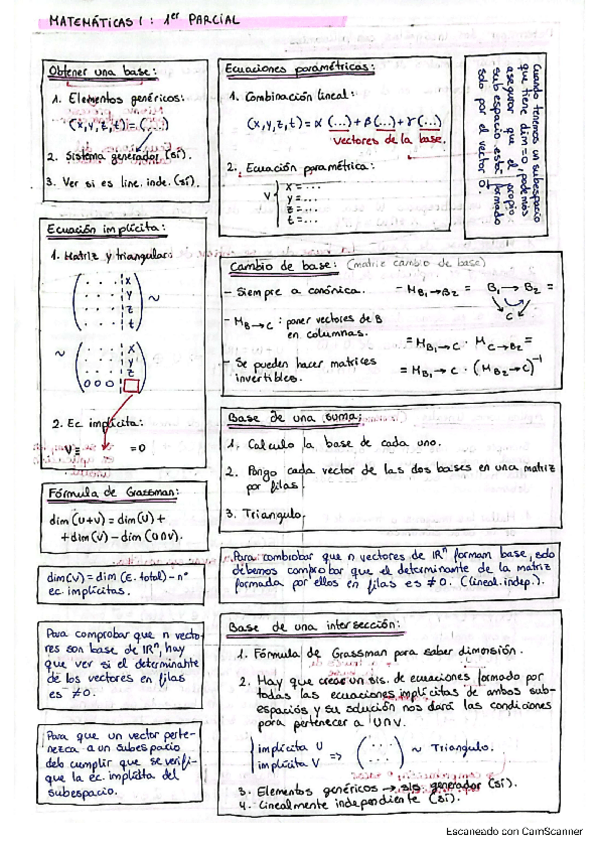 MATEMÁTICAS I : 1er PARCIAL
Obtener una base:
1. Elementos genéricos:
(x,y,z,t) = (,...)
2. Sistema generador (sí).
3. Ver si es line. inde. (sí).
Ecuaciones paramétricas:
1. Combinación lineal:
(x,y,z,t) = α (...) + β (...) + γ (...)
vectores de la base.
2. Ecuación paramétrica:
V
x = ...
y = ...
z = ...
t = ...
Cuando tenemos un subespacio
que tiene dim=0, podemos
asegurar que el propio
subespacio está formado
solo por el vector 0.
Ecuación implícita:
1. Matriz y triangular:
. . . x
. . . y ~
. . . z
. . . t
~ . . . x
. . . y
. . . z
0 0 0
2. Ec. implícita:
V ≡ =0
Cambio de base: (matriz cambio de base)
- Siempre a canónica.
- M B→C : poner vectores de B
en columnas.
- Se pueden hacer matrices
invertibles.
- M B₁→B₂ = B₁ → B₂ =
C
= M B₁→C · M C→B₂ =
= M B₁→C · (M B₂→C)⁻¹
Base de una suma:
1. Calculo la base de cada uno.
2. Pongo cada vector de las dos bases en una matriz
por filas.
3. Triangulo.
Fórmula de Grassman:
dim (U+V) = dim (U) +
+ dim (V) - dim (U∩V).
dim (V) = dim (E. total) - nº
ec. implícitas.
Para combrobar que n vectores de ℝⁿ forman base, solo
debemos comprobar que el determinante de la matriz
formada por ellos en filas es ≠ 0. (lineal. indep.).
Para comprobar que n vecto
res son base de ℝⁿ, hay
que ver si el determinante
de los vectores en filas
es ≠ 0.
Para que un vector perte-
nezca a un subespacio
deb cumplir que se verifi-
que la ec. implícita del
subespacio.
Base de una intersección:
1. Fórmula de Grassman para saber dimensión.
2. Hay que crear un sis. de ecuaciones formado por
todas las ecuaciones implícitas de ambos sub-
espacios y su solución nos dará las condiciones
para pertenecer a U∩V.
implícita U
implícita V => (. . .) ~ Triangulo.
3. Elementos genéricos → sis. generador (sí).
4. Linealmente independiente (sí).
Escaneado con CamScanner